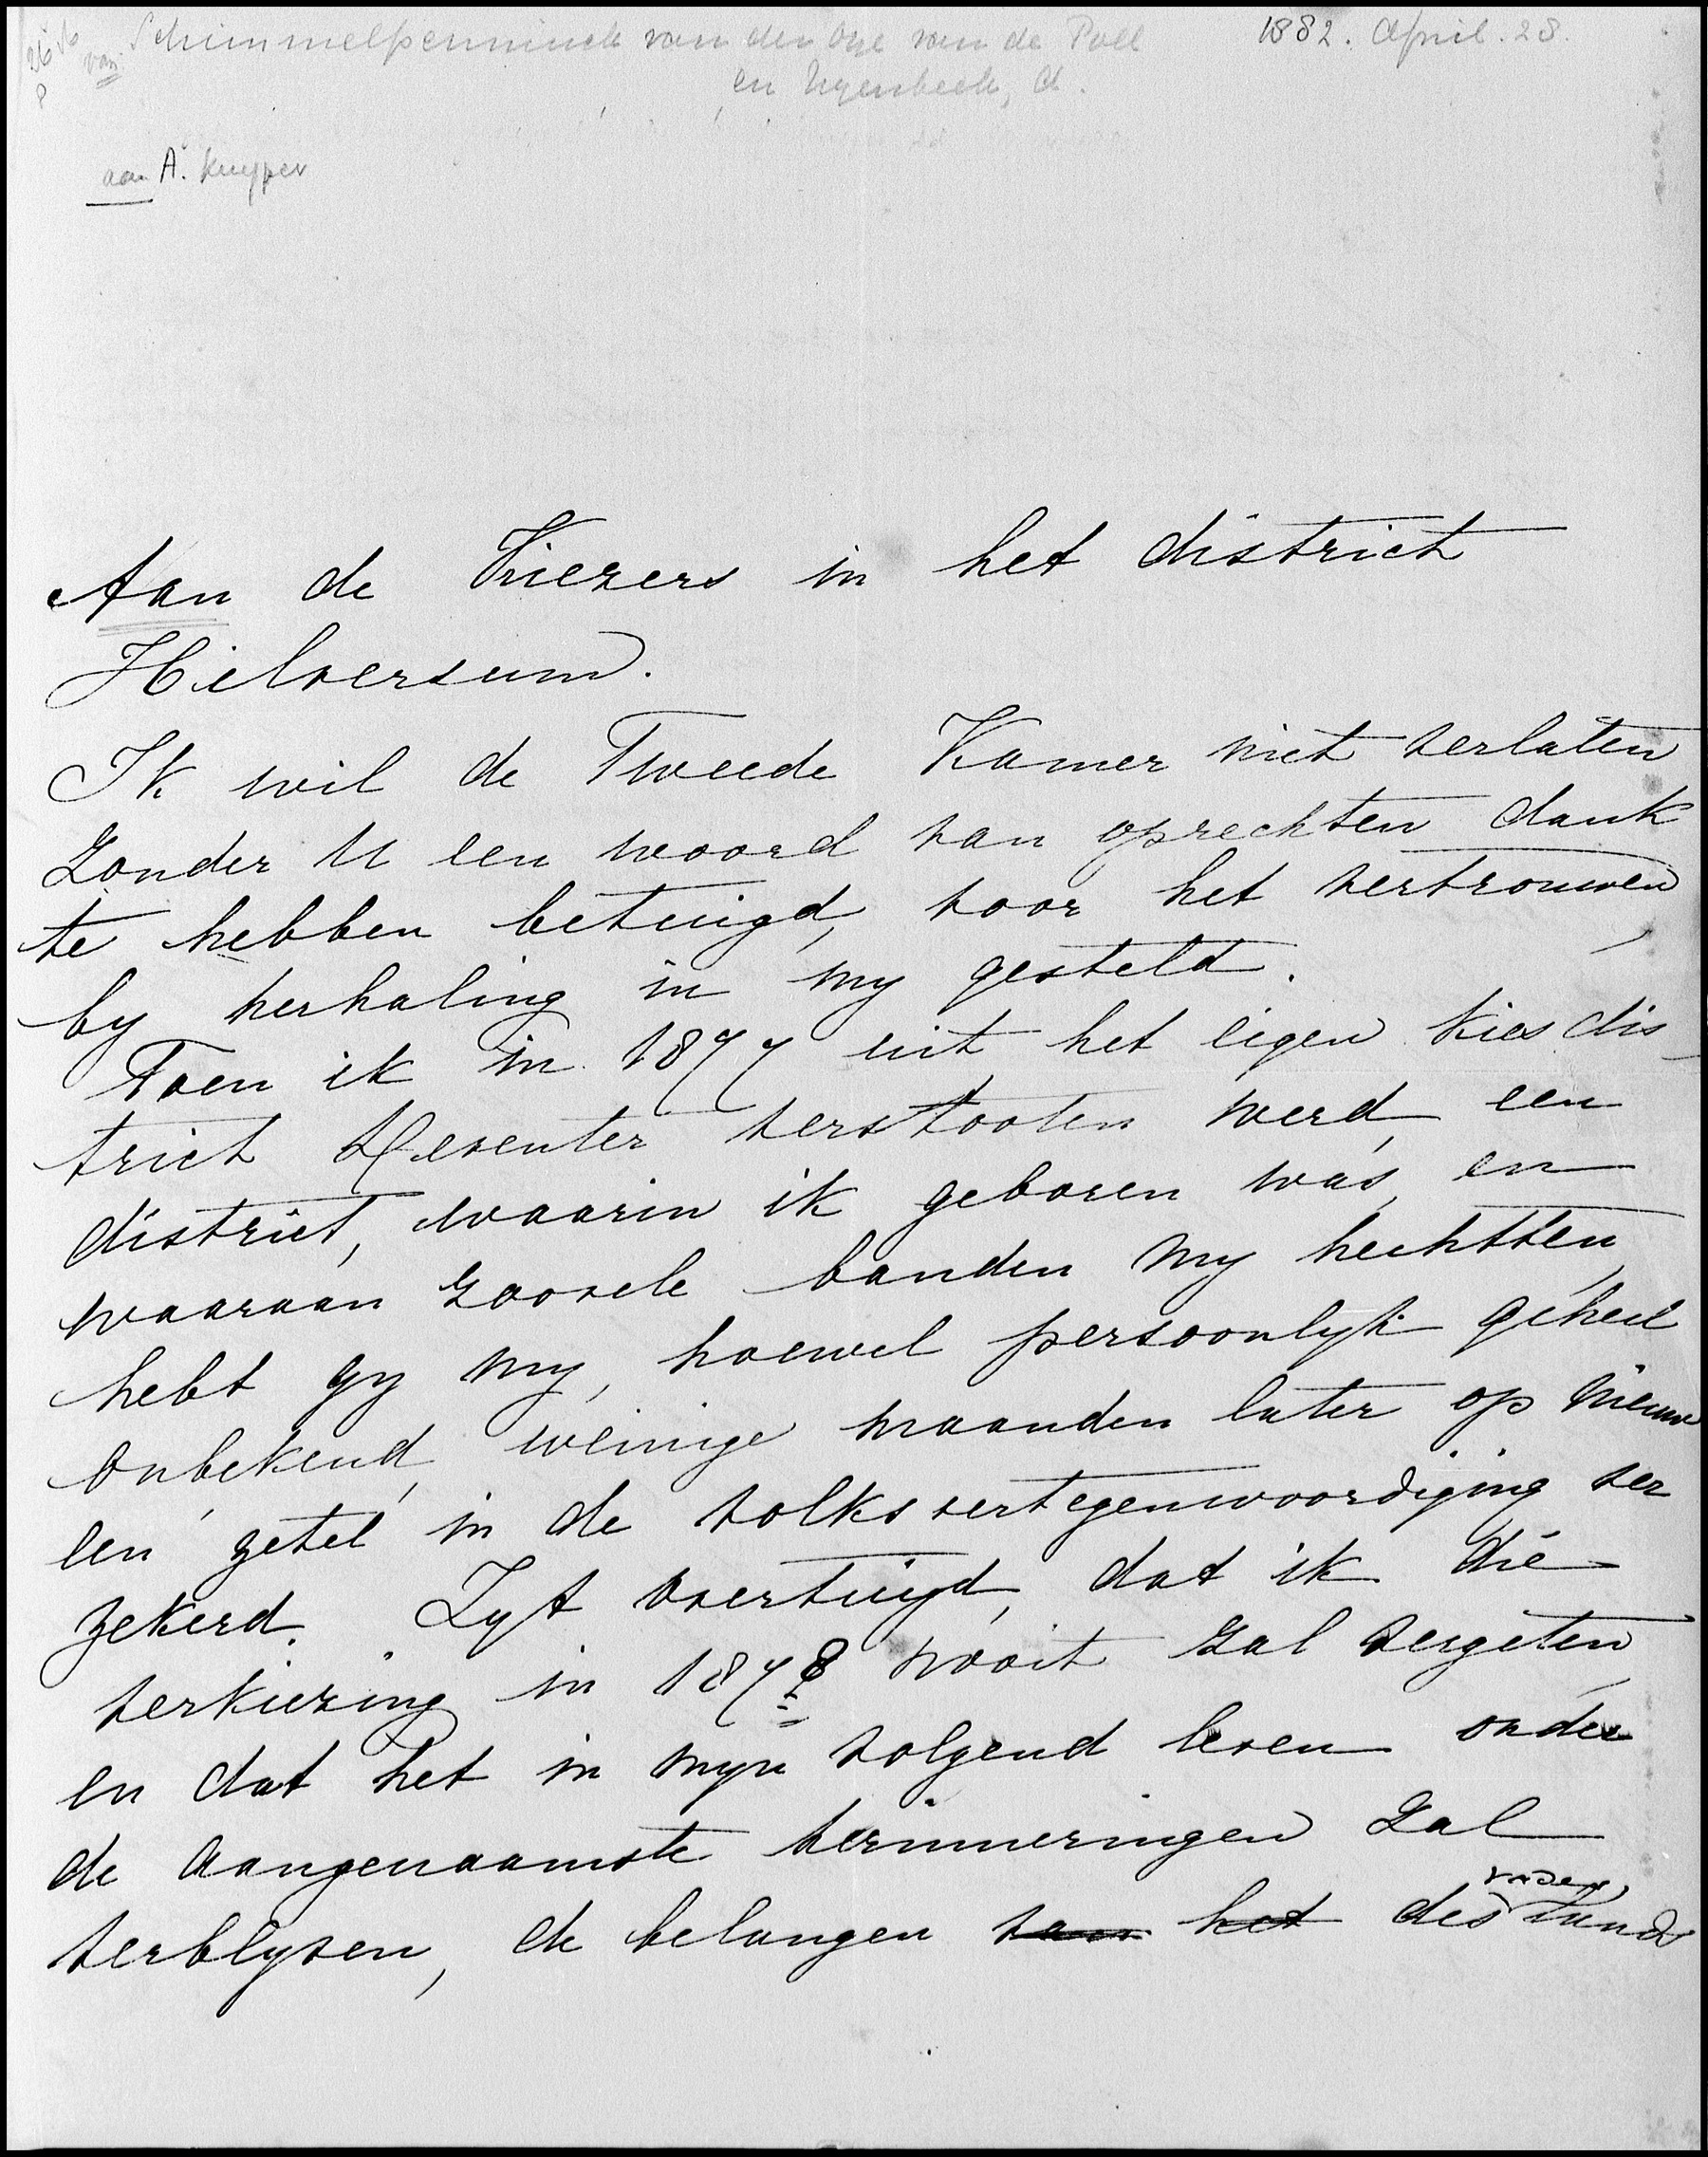 van Schimmelpenninck van der Oye van de Poll 1882. April. 28.
en Nyenbeek, A.
aan A. Kuyper
Aan de Kiezers in het district
Hilversum.
Ik wil de Tweede Kamer niet verlaten
zonder U een woord van oprechten dank
te hebben betuigd, voor het vertrouwen
by herhaling in my gesteld.
Toen ik in 1877 uit het eigen kies dis-
trict Deventer verstooten werd, een
district, waarin ik geboren was, en
waaraan zoovele banden my hechtten,
hebt gy my, hoewel persoonlyk geheel
onbekend, weinige maanden later op nieuw
een zetel in de volksvertegenwoordiging ver
zekerd. Zyt overtuigd, dat ik die
verkiezing in 1878 nooit zal vergeten,
en dat het in myn volgend leven onder
de aangenaamste herinneringen zal
verblyven, de belangen van het des vaderlands